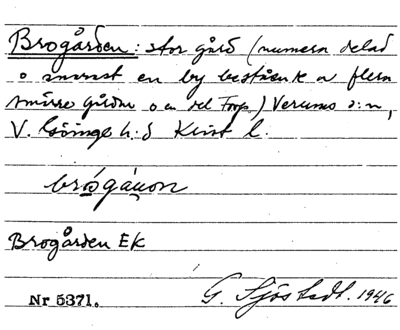 Brogården: stor gård (numera delad
o snarast en by bestående av flera
smärre gårdar o en del Torp.) Verums s:n,
V. Göinge h:d Krist l.
brogánon
Brogården EK
Nr 5371. G. Sjöstedt. 1946